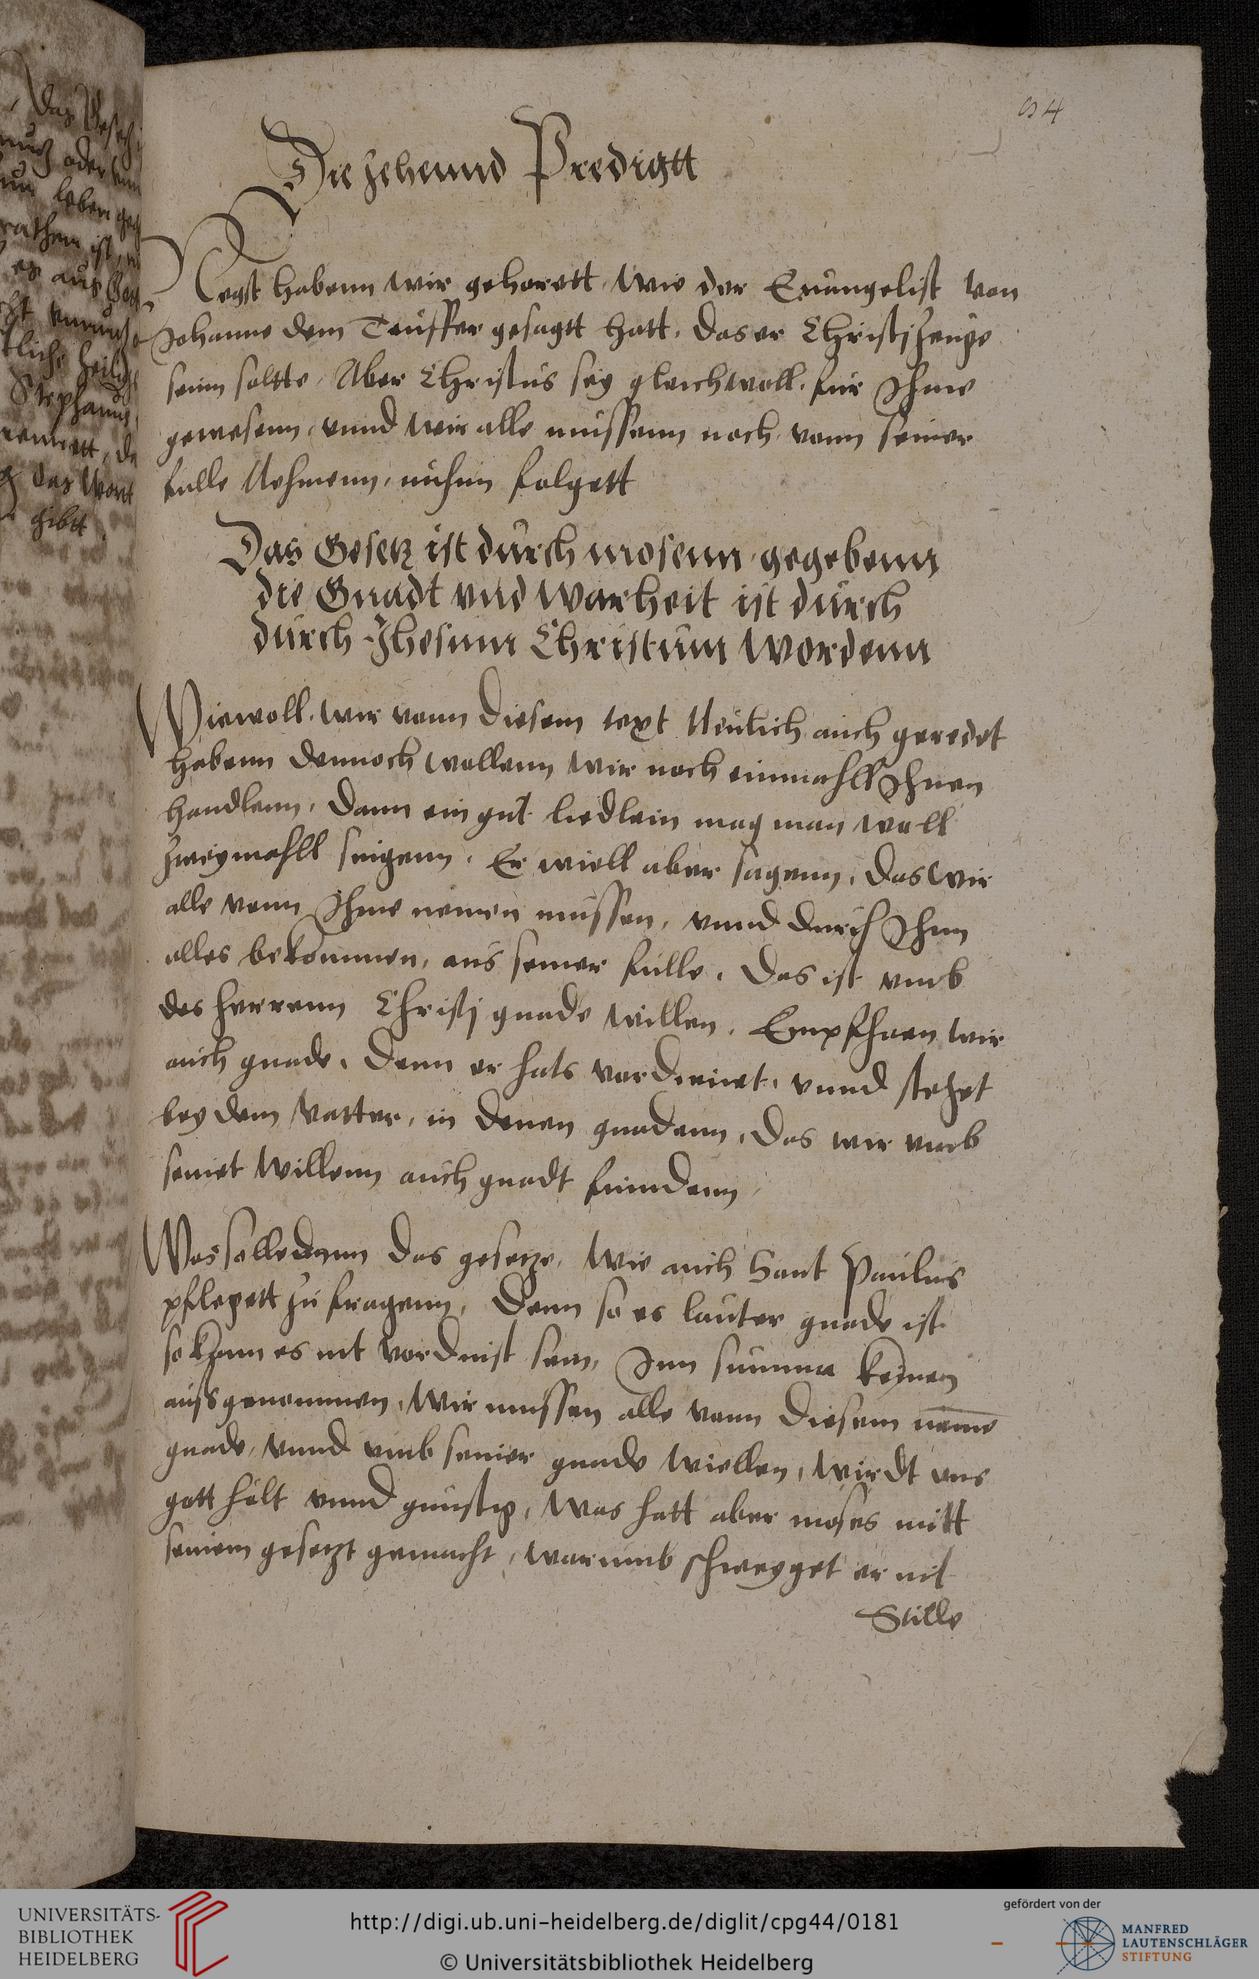 94
Die zehennd Predigtt
Negst habenn wir gehorett, wie der Euangelist von
Johanne dem Teuffer gesagtt hatt, das er Christj zeuge
seinn soltte, Aber Christus sey gleichwoll fur Ihme
gewesenn, vnnd wir alle mussenn noch vonn seiner
fulle Nehmenn, nuhnn folgett
Das Gesetz ist durch mosenn gegebenn
die Gnadt vnd warheit ist durch
durch Jhesum Christum wordenn
Wiewoll wir vonn diesem text Neulich auch geredet
habenn dennoch wollenn wir noch einmahll Ihnen
handlenn, Dann ein gut liedlein mag man woll
zweymahll singenn. Er wiell aber sagenn, das wir
alle vonn Ihme nemen mussen, vnnd durch Ihnn
alles bekommen, aus seiner fulle, Das ist vmb
des herrenn Christj gnade willen, Empfhaen wir
auch gnade, Denn er hats vordienet, vnnd stehet
bey dem Vatter, in denen gnadenn, das wir vmb
seinet willenn auch gnadt finndenn,
Was solle dann das gesetze, wie auch Sant Paulus
pflegett zu fragenn, Denn so es lauter gnade ist
so kann es nit vordinst sein, Inn summa keinen
aussgenommen, wir mussen alle vonn diesem neme
gnade, vnnd vmb seiner gnade wiellen, wirdt vns
gott holt vnnd gunstig, Was hatt aber moses mitt
seinem gesetzt gemacht, warumb schweyget er nit
Stille
UNIVERSITÄTS-
BIBLIOTHEK
HEIDELBERG
http://digi.ub.uni-heidelberg.de/diglit/cpg44/0181
© Universitätsbibliothek Heidelberg
gefördert von der
MANFRED
LAUTENSCHLÄGER
STIFTUNG